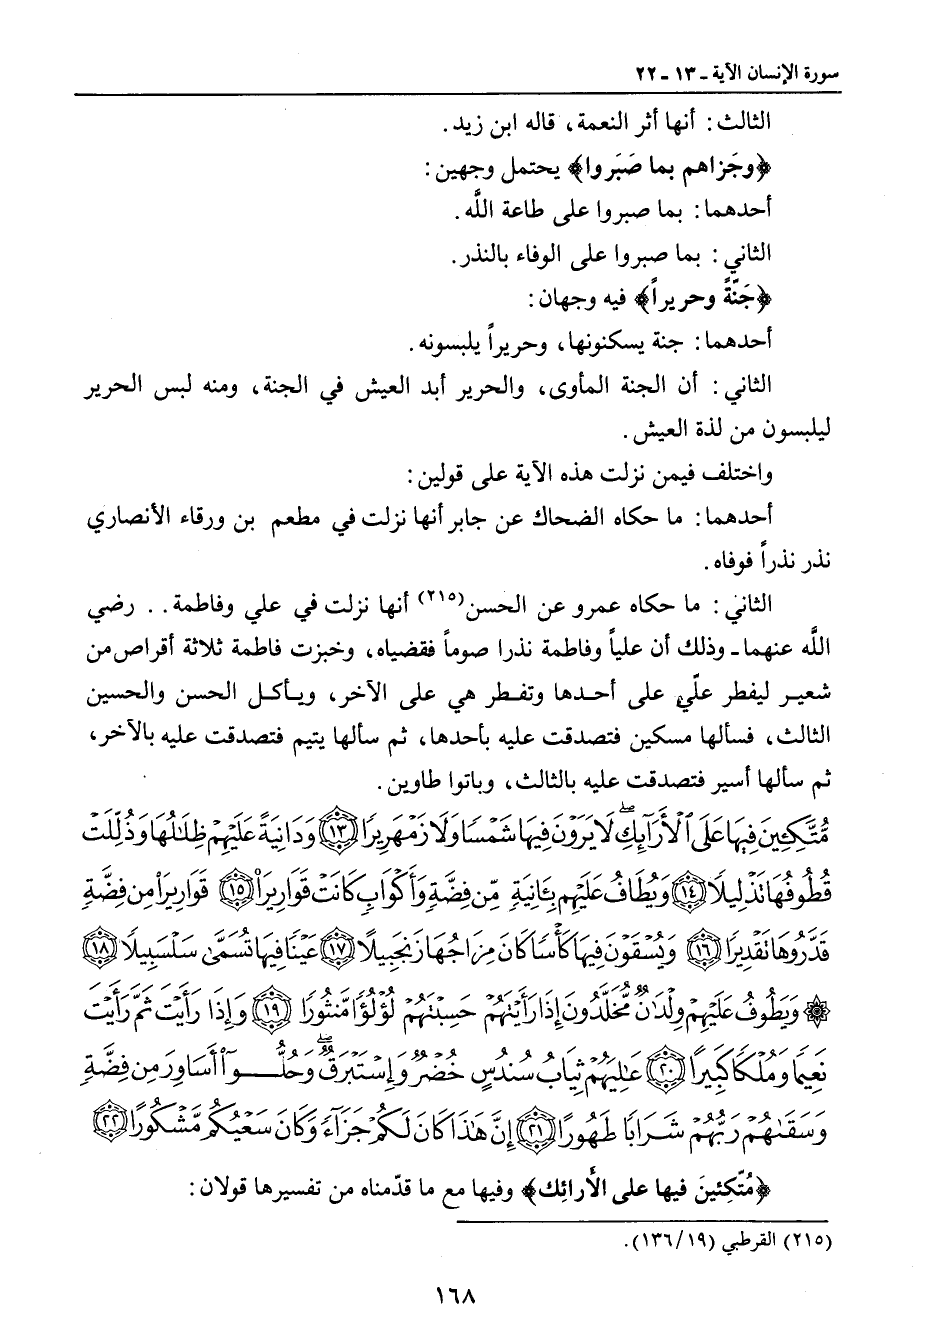 سورة الإنسان الآية ـ ١٣ ـ ٢٢
الثالث: أنها أثر النعمة، قاله ابن زيد.
﴿وجَزاهم بما صَبَروا﴾ يحتمل وجهين:
أحدهما: بما صبروا على طاعة اللَّه.
الثاني: بما صبروا على الوفاء بالنذر.
﴿جَنّةً وحريراً﴾ فيه وجهان:
أحدهما: جنة يسكنونها، وحريراً يلبسونه.
الثاني: أن الجنة المأوى، والحرير أبد العيش في الجنة، ومنه لبس الحرير
ليلبسون من لذة العيش.
واختلف فيمن نزلت هذه الآية على قولين:
أحدهما: ما حكاه الضحاك عن جابر أنها نزلت في مطعم بن ورقاء الأنصاري
نذر نذراً فوفاه.
الثاني: ما حكاه عمرو عن الحسن(٢١٥) أنها نزلت في علي وفاطمة.. رضي
اللَّه عنهما ـ وذلك أن علياً وفاطمة نذرا صوماً فقضياه، وخبزت فاطمة ثلاثة أقراص من
شعير ليفطر عليّ على أحدها وتفطر هي على الآخر، ويأكل الحسن والحسين
الثالث، فسألها مسكين فتصدقت عليه بأحدها، ثم سألها يتيم فتصدقت عليه بالآخر،
ثم سألها أسير فتصدقت عليه بالثالث، وباتوا طاوين.
مُّتَّكِـِٔينَ فِيهَا عَلَى ٱلْأَرَآئِكِ ۖ لَا يَرَوْنَ فِيهَا شَمْسًا وَلَا زَمْهَرِيرًا ﴿١٣﴾ وَدَانِيَةً عَلَيْهِمْ ظِلَٰلُهَا وَذُلِّلَتْ
قُطُوفُهَا تَذْلِيلًا ﴿١٤﴾ وَيُطَافُ عَلَيْهِم بِـَٔانِيَةٍ مِّن فِضَّةٍ وَأَكْوَابٍ كَانَتْ قَوَارِيرَا۠ ﴿١٥﴾ قَوَارِيرَا۟ مِن فِضَّةٍ
قَدَّرُوهَا تَقْدِيرًا ﴿١٦﴾ وَيُسْقَوْنَ فِيهَا كَأْسًا كَانَ مِزَاجُهَا زَنجَبِيلًا ﴿١٧﴾ عَيْنًا فِيهَا تُسَمَّىٰ سَلْسَبِيلًا ﴿١٨﴾
۞ وَيَطُوفُ عَلَيْهِمْ وِلْدَٰنٌ مُّخَلَّدُونَ إِذَا رَأَيْتَهُمْ حَسِبْتَهُمْ لُؤْلُؤًا مَّنثُورًا ﴿١٩﴾ وَإِذَا رَأَيْتَ ثَمَّ رَأَيْتَ
نَعِيمًا وَمُلْكًا كَبِيرًا ﴿٢٠﴾ عَٰلِيَهُمْ ثِيَابُ سُندُسٍ خُضْرٌ وَإِسْتَبْرَقٌ ۖ وَحُلُّوٓا۟ أَسَاوِرَ مِن فِضَّةٍ
وَسَقَىٰهُمْ رَبُّهُمْ شَرَابًا طَهُورًا ﴿٢١﴾ إِنَّ هَٰذَا كَانَ لَكُمْ جَزَآءً وَكَانَ سَعْيُكُم مَّشْكُورًا ﴿٢٢﴾
﴿مُتّكِئينَ فيها على الأرائِك﴾ وفيها مع ما قدّمناه من تفسيرها قولان:
(٢١٥) القرطبي (١٩/ ١٣٦).
١٦٨